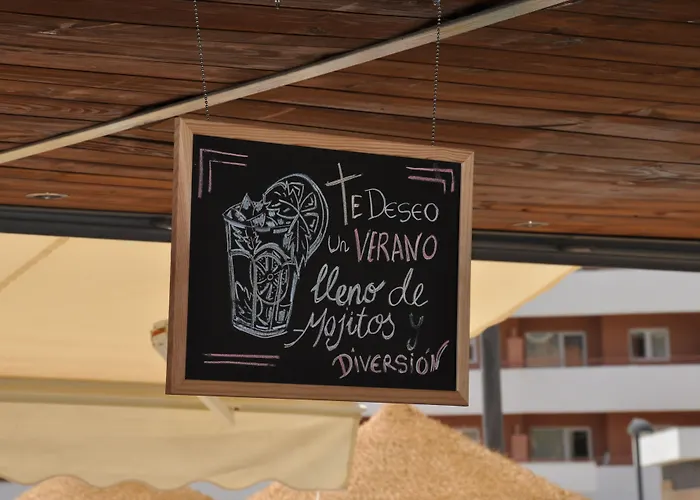 Te Deseo
un VERANO
lleno de
Mojitos y
DIVERSIÓN